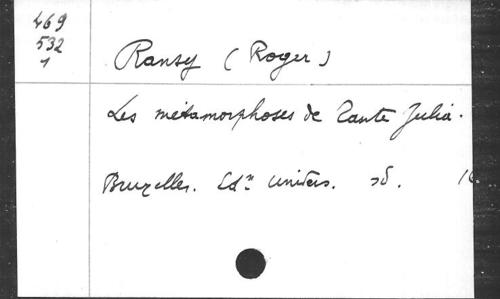 469
532
1
Ransy (Roger)
Les métamorphoses de Tante Julia.
Bruxelles. Edⁿ univers. sd. 16